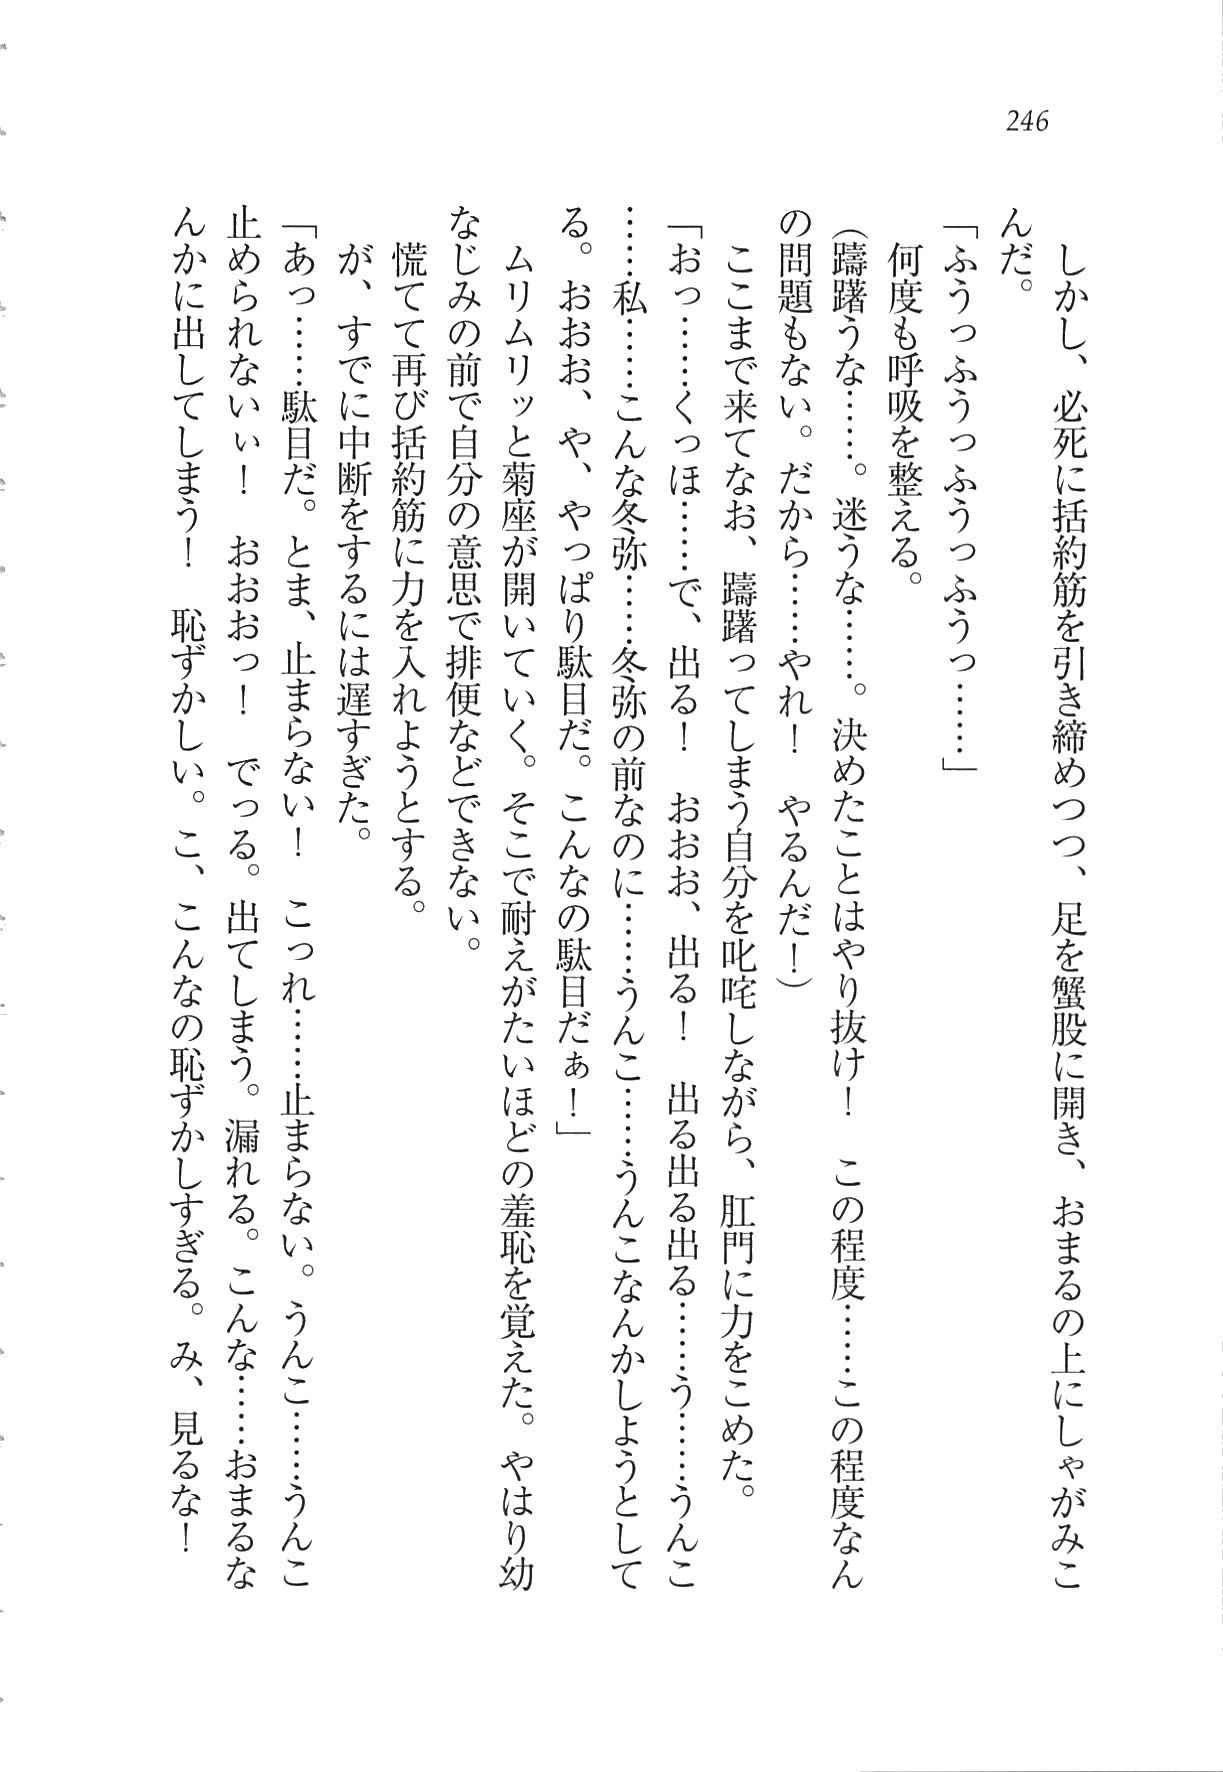 246
しかし、必死に括約筋を引き締めつつ、足を蟹股に開き、おまるの上にしゃがみこ
んだ。
「ふうっふうっふうっふうっ……」
何度も呼吸を整える。
（躊躇うな……。迷うな……。決めたことはやり抜け！　この程度……この程度なん
の問題もない。だから……やれ！　やるんだ！）
ここまで来てなお、躊躇ってしまう自分を叱咤しながら、肛門に力をこめた。
「おっ……くっほ……で、出る！　おおお、出る！　出る出る出る……う……うんこ
……私……こんな冬弥……冬弥の前なのに……うんこ……うんこなんかしようとして
る。おおお、や、やっぱり駄目だ。こんなの駄目だぁ！」
ムリムリッと菊座が開いていく。そこで耐えがたいほどの羞恥を覚えた。やはり幼
なじみの前で自分の意思で排便などできない。
慌てて再び括約筋に力を入れようとする。
が、すでに中断をするには遅すぎた。
「あっ……駄目だ。とま、止まらない！　こっれ……止まらない。うんこ……うんこ
止められないぃ！　おおおっ！　でっる。出てしまう。漏れる。こんな……おまるな
んかに出してしまう！　恥ずかしい。こ、こんなの恥ずかしすぎる。み、見るな！